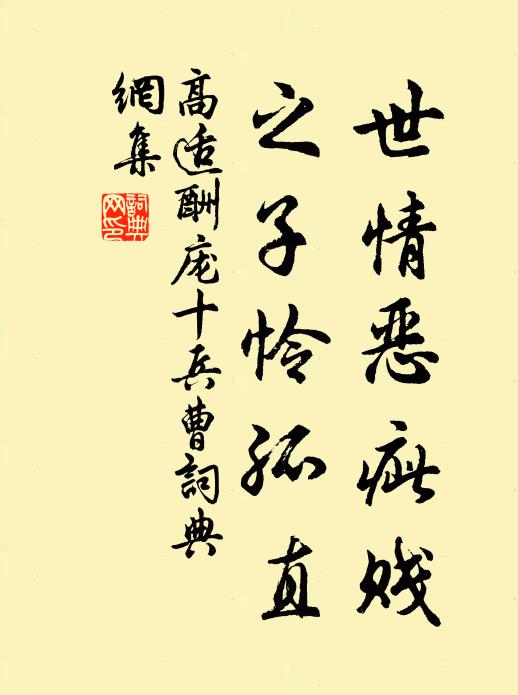 世情恶疵贱
之子怜孤直
高适酬庞十兵曹詞典
網集
詞典
网印